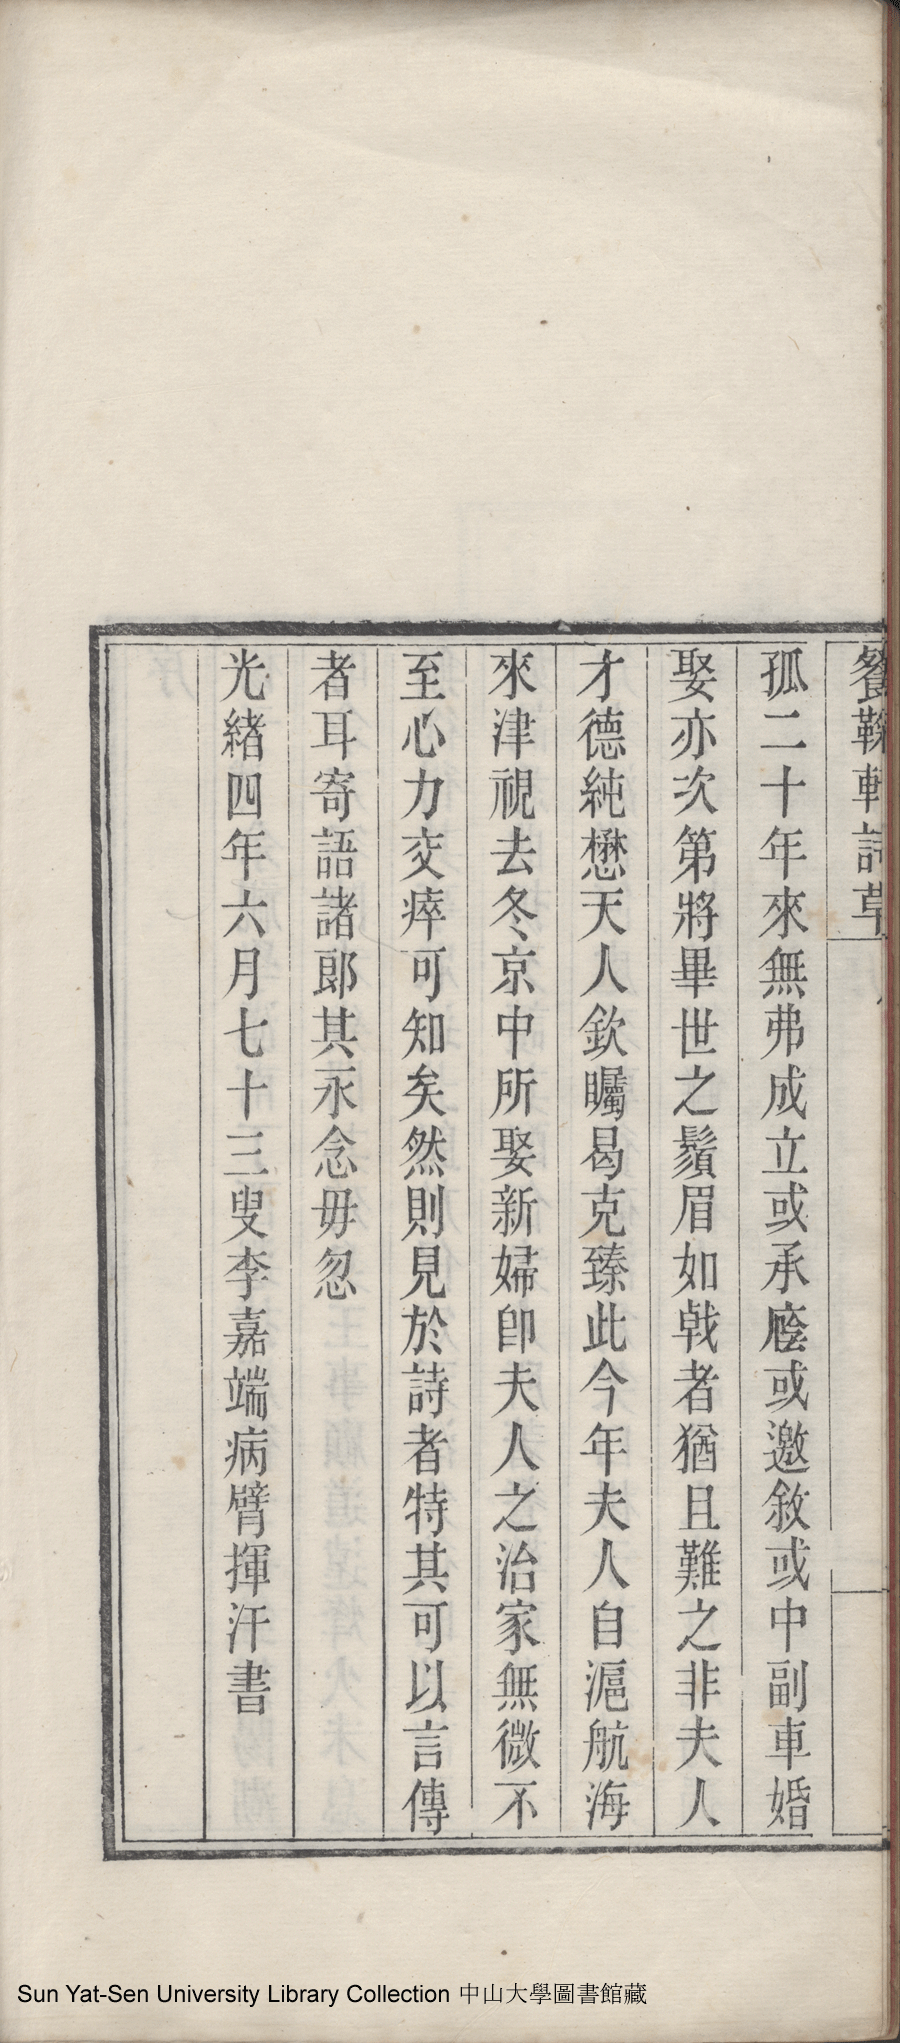 餐鞠軒詩草
孤二十年來無弗成立或承廕或邀敘或中副車婚
娶亦次第將畢世之鬚眉如戟者猶且難之非夫人
才德純懋天人欽矚曷克臻此今年夫人自滬航海
來津視去冬京中所娶新婦卽夫人之治家無微不
至心力交瘁可知矣然則見於詩者特其可以言傳
者耳寄語諸郎其永念毋忽
光緒四年六月七十三叟李嘉端病臂揮汗書
Sun Yat-Sen University Library Collection 中山大學圖書館藏